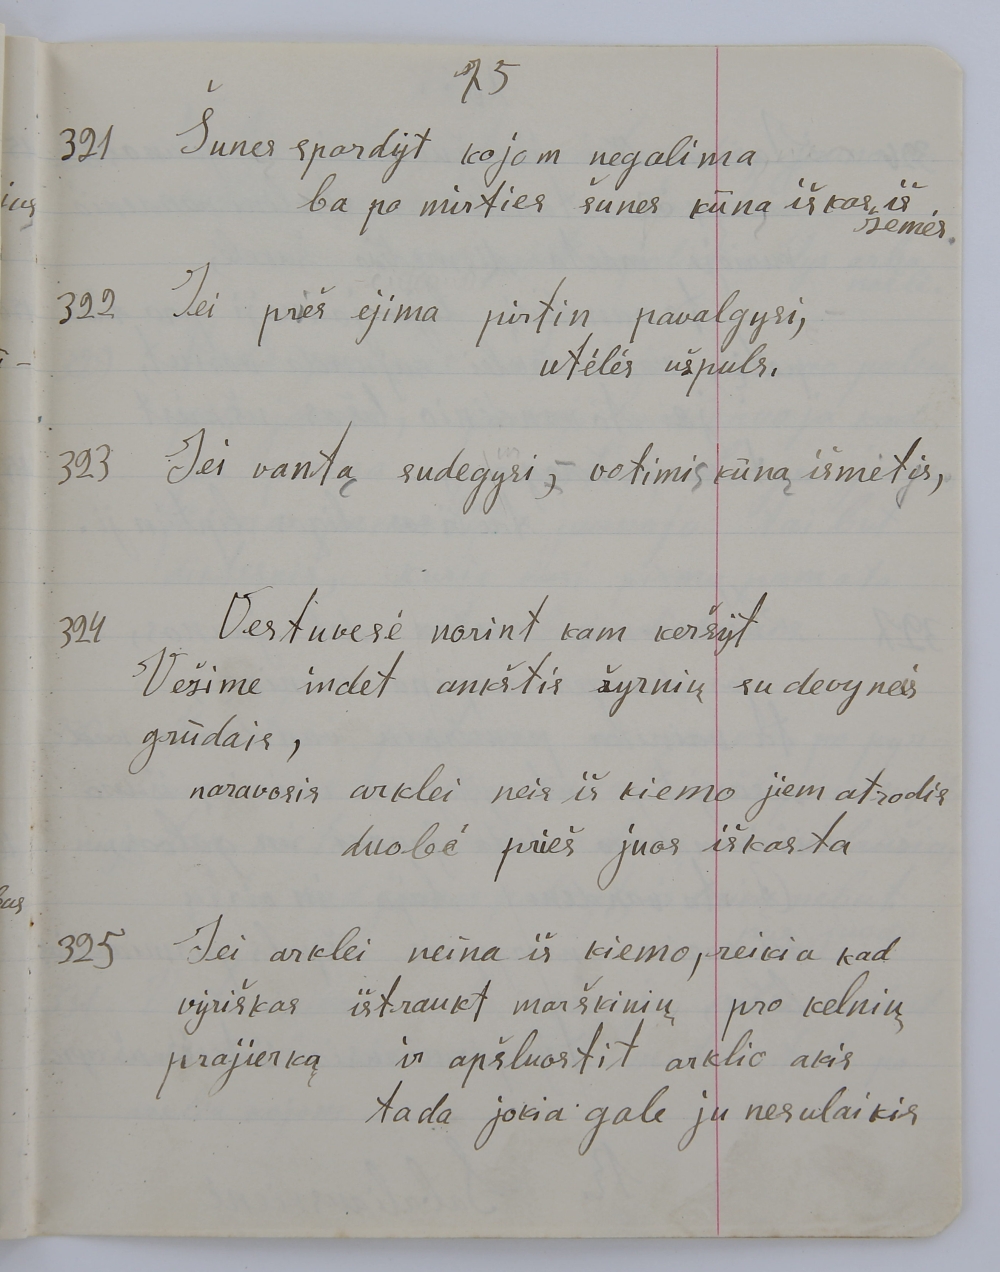 75
321 Šunes spardyt kojom negalima
ba po mirties šunes kūną iškas iš
žemės.
322 Jei prieš ejima pirtin pavalgysi,
utėlės užpuls.
323 Jei vantą sudegysi, votimis kūną išmėtįs,
324 Vestuvesė norint kam keršyt
Vežime indet ankštis žyrnių su devyneis
grūdais,
naravosis arklei neis iš kiemo jiem atrodis
duobė prieš juos iškasta
325 Jei arklei neina iš kiemo, reikia kad
vyriškas ištraukt marškinių pro kelnių
prajierką ir apšluostit arklio akis
tada jokia gale ju nesulaikis